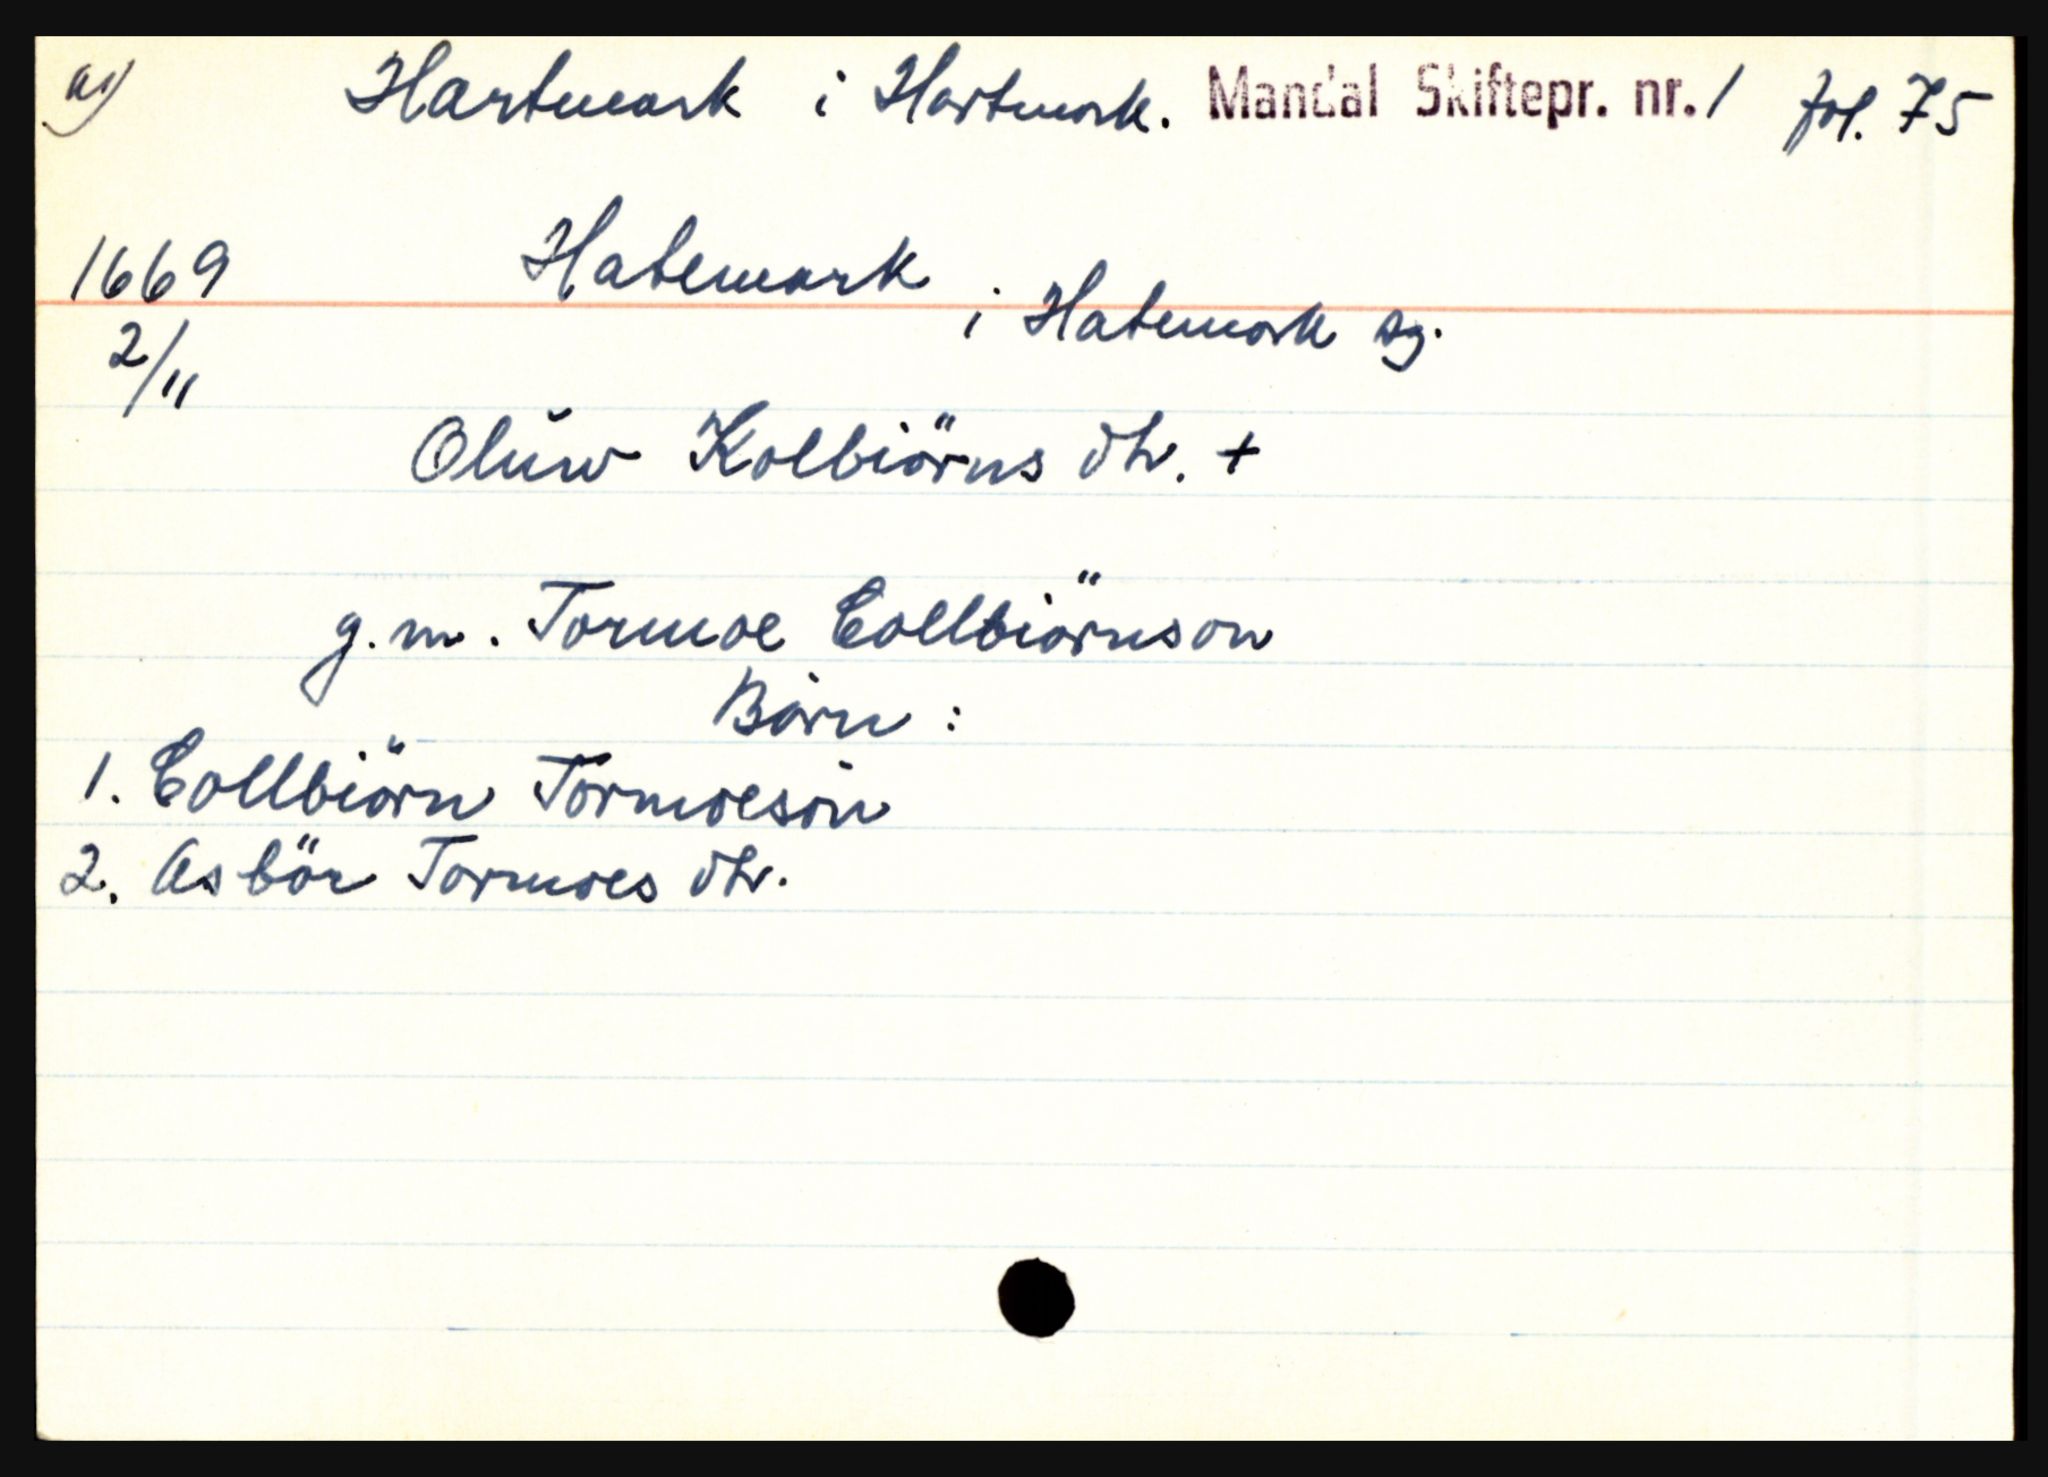 a) Hartmark i Hartmark. Mandal Skiftepr. nr. 1 fol. 75
1669 Hatemark
2/11 i Hatemark sg.
Oluw Kolbiörns dtr. +
g. m. Tormoe Collbiörnson
Børn :
1. Collbiörn Tormoeson
2. Asbör Tormoes dtr.